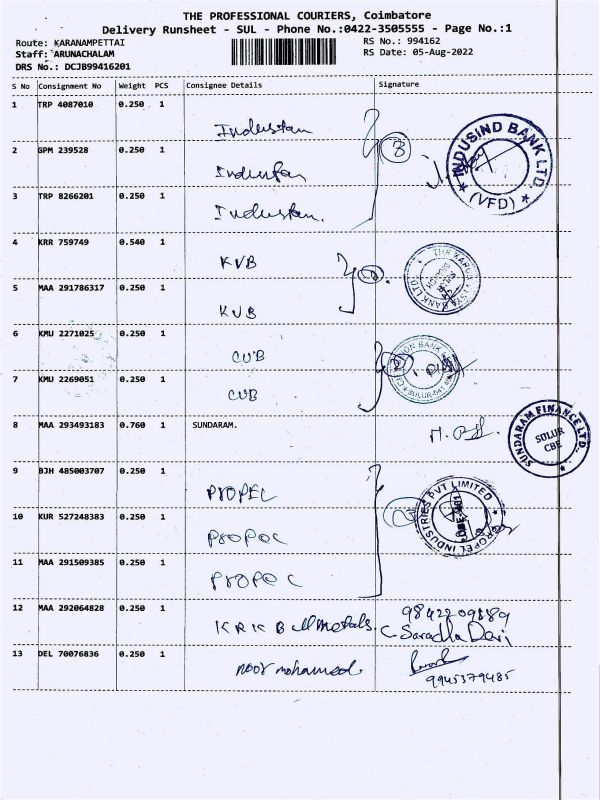 THE PROFESSIONAL COURIERS, Coimbatore
Delivery Runsheet - SUL - Phone No.:0422-3505555 - Page No.:1
Route: KARANAMPETTAI
RS No.: 994162
Staff: ARUNACHALAM
RS Date: 05-Aug-2022
DRS No.: DCJB99416201
S No Consignment No Weight PCS Consignee Details Signature
1 TRP 4087010 0.250 1
INDUSIND BANK LTD
(VFD)
2 GPM 239528 0.250 1
3 TRP 8266201 0.250 1
4 KRR 759749 0.540 1 KVB
5 MAA 291786317 0.250 1 KVB
6 KMU 2271025 0.250 1 CUB
7 KMU 2269051 0.250 1 CUB
8 MAA 293493183 0.760 1 SUNDARAM.
SUNDARAM FINANCE LTD.
SULUR
CBE
9 BJH 485003707 0.250 1 PROPEL
PROPEL INDUSTRIES PVT LIMITED
10 KUR 527248383 0.250 1
11 MAA 291509385 0.250 1
12 MAA 292064828 0.250 1 KRKB
C. Saradha Devi
13 DEL 70076836 0.250 1 noor mohamed.
9945379485